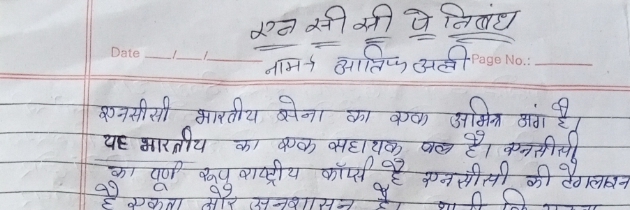 एन सी सी पे निबंध
Date __/__/____ नाम अातिफ अली Page No.: ______
एनसीसी भारतीय सेना का एक अभिन्न अंग है।
यह भारतीय का एक सहायक बल है। एनसीसी
का पूर्ण रूप राष्ट्रीय कॉर्प्स है एनसीसी की टैगलाइन
है एकता और अनुशासन है।